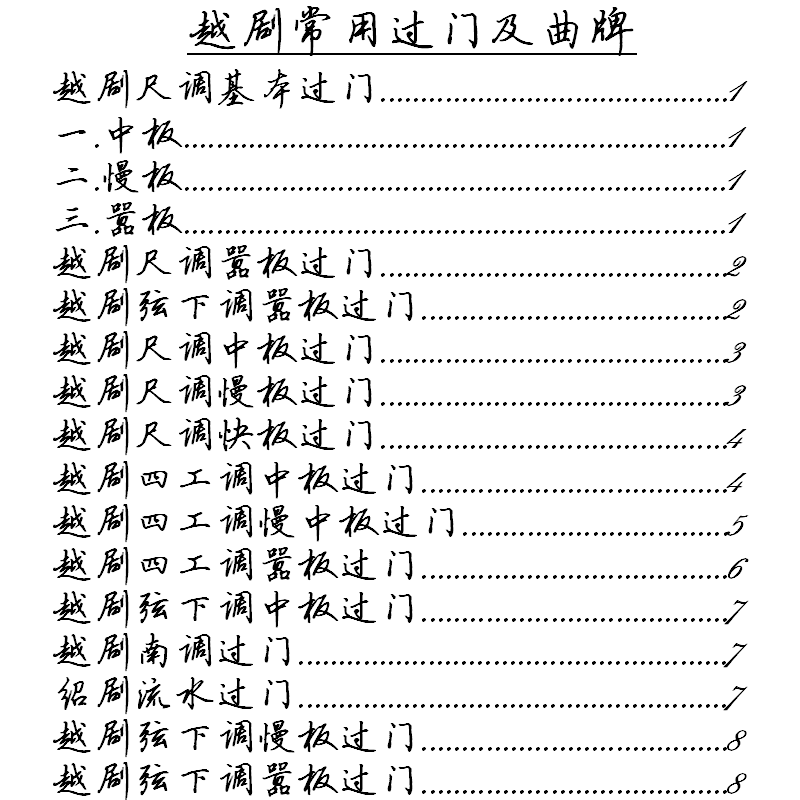 越剧常用过门及曲牌
越剧尺调基本过门......................................1
一.中板......................................1
二.慢板......................................1
三.嚣板......................................1
越剧尺调嚣板过门......................................2
越剧弦下调嚣板过门......................................2
越剧尺调中板过门......................................3
越剧尺调慢板过门......................................3
越剧尺调快板过门......................................4
越剧四工调中板过门......................................4
越剧四工调慢中板过门......................................5
越剧四工调嚣板过门......................................6
越剧弦下调中板过门......................................7
越剧南调过门......................................7
绍剧流水过门......................................7
越剧弦下调慢板过门......................................8
越剧弦下调嚣板过门......................................8